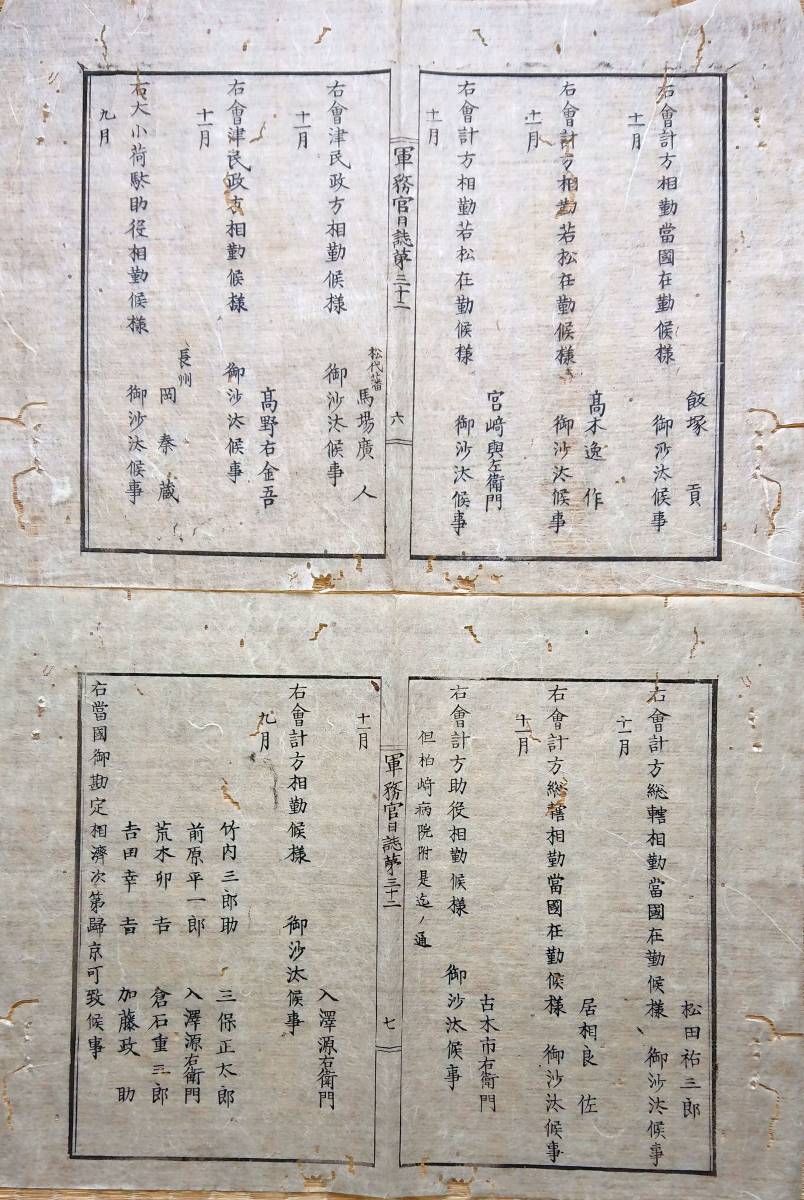 飯塚 貢
右會計方相勤當國在勤候様 御沙汰候事
十一月
髙木逸作
右會計方相勤若松在勤候様 御沙汰候事
十一月
宮﨑與左衛門
右會計方相勤若松在勤候様 御沙汰候事
十一月
軍務官日誌第三十二 六
松代藩 馬場廣人
右會津民政方相勤候様 御沙汰候事
十一月
髙野右金吾
右會津民政方相勤候様 御沙汰候事
十一月
長州 岡泰蔵
右大小荷駄助役相勤候様 御沙汰候事
九月
松田祐三郎
右會計方総轄相勤當國在勤候様 御沙汰候事
十一月
居相良佐
右會計方総轄相勤當國在勤候様 御沙汰候事
十一月
古木市右衛門
右會計方助役相勤候様 御沙汰候事
但柏﨑病院附是迄ノ通
軍務官日誌第三十二 七
十一月
入澤源右衛門
右會計方相勤候様 御沙汰候事
九月
竹内三郎助 三保正太郎
前原平一郎 入澤源右衛門
荒木卯吉 倉石重三郎
吉田幸吉 加藤政助
右當國御勘定相濟次第歸京可致候事